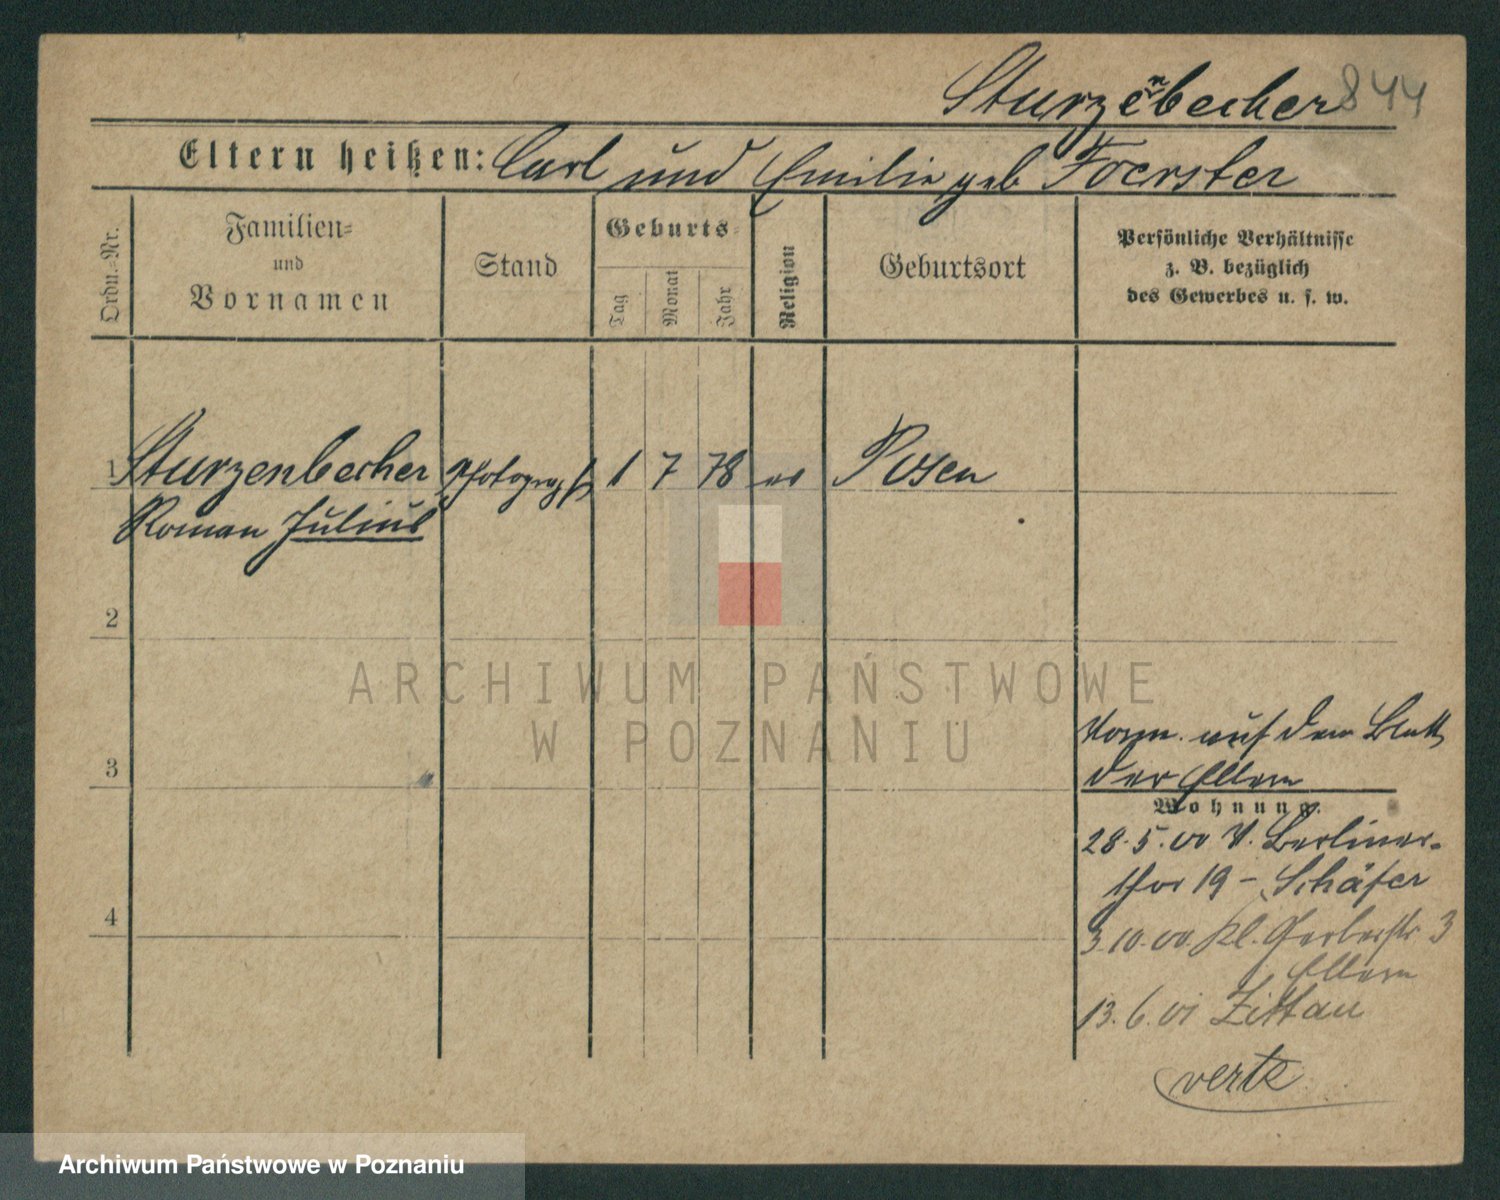 Sturzenbecher 844
Eltern heißen: Carl und Emilie geb Foerster
Ordn.-Nr.
Familien-
und
Vornamen
Stand
Geburts-
Tag
Monat
Jahr
Religion
Geburtsort
Persönliche Verhältnisse
z. B. bezüglich
des Gewerbes u. s. w.
1 Sturzenbecher Photograph 1 7 78 ev Posen
Roman Julius
2
3
4
auf dem Blatt
der Eltern
Wohnung.
28.5.00 V. Berliner-
thor 19 - Schäfer
3.10.00. Kl. Gerberstr. 3
Eltern
13.6.01 Zittau
verte
ARCHIWUM PAŃSTWOWE
W POZNANIU
Archiwum Państwowe w Poznaniu